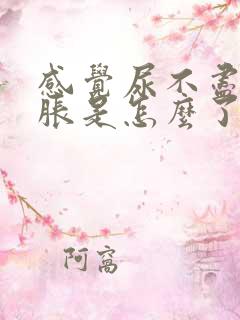 感覺尿不盡
脹是怎麼了
阿窩